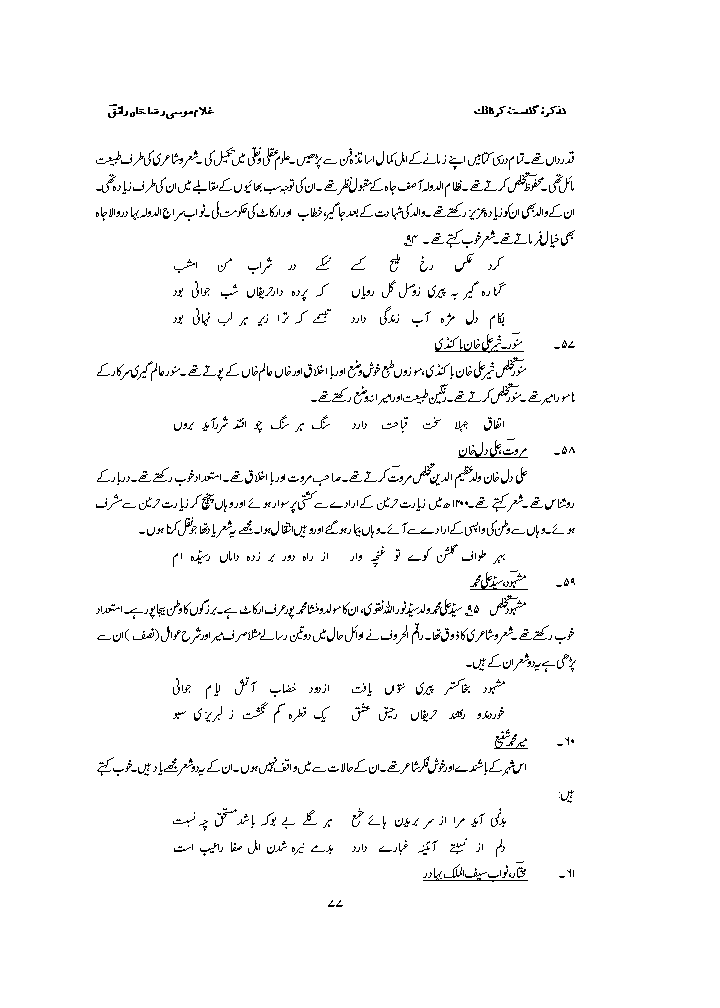 تذکرۂ گلدستۂ کرناٹک غلام موسیٰ رضا خاں رائقؔ
قدرداں تھے۔ تمام درسی کتابیں اپنے زمانے کے اہل کمال اساتذۂ فن سے پڑھیں۔ علوم عقلی و نقلی میں تکمیل کی۔ شعر و شاعری کی طرف طبیعت
مائل تھی۔ محفوظؔ تخلص کرتے تھے۔ نظام الدولہ آصف جاہ کے مقبول نظر تھے۔ ان کی توجہ سب بھائیوں کے مقابلے میں ان کی طرف زیادہ تھی۔
ان کے والد بھی ان کو زیادہ عزیز رکھتے تھے۔ والد کی شہادت کے بعد جاگیر، خطاب اور ارکاٹ کی حکومت ملی۔ نواب سراج الدولہ بہادر والا جاہ
بھی خیال فرماتے تھے۔ شعر خوب کہتے تھے۔ ۹۴
کرد عکس رخ ملیح کسے نمکے در شراب من امشب
کنارہ گیر بہ پیری ز وصل گل رویاں کہ پردہ دار حریفاں شب جوانی بود
بکام دل مژہ آب زندگی دارد تبسمے کہ ترا زیر ہر لب نہانی بود
۵۷۔ منورؔ۔ خیر علی خان باکنڈی
منورؔ تخلص خیر علی خان باکنڈی، موزوں طبع خوش وضع اور با اخلاق اور خاں عالم خاں کے پوتے تھے۔ منور عالم گیری سرکار کے
نامور امیر تھے۔ منورؔ تخلص کرتے تھے۔ رنگین طبیعت اور امیرانہ وضع رکھتے تھے۔
اتفاق جہلا سخت قباحت دارد سنگ ہر سنگ چو افتد شرر آید بروں
۵۸۔ مروتؔ، علی دل خان
علی دل خان ولد عظیم الدین تخلص مروتؔ کرتے تھے۔ صاحب مروت اور با اخلاق تھے۔ استعداد خوب رکھتے تھے۔ دربار کے
روشناس تھے۔ شعر کہتے تھے۔ ۱۲۰۰ھ میں زیارت حرمین کے ارادے سے کشتی پر سوار ہوئے اور وہاں پہنچ کر زیارت حرمین سے مشرف
ہوئے۔ وہاں سے وطن کی واپسی کے ارادے سے آئے۔ وہاں بیمار ہو گئے اور وہیں انتقال ہوا۔ مجھے یہ شعر یاد تھا جو نقل کرتا ہوں۔
بہر طواف گلشن کوے تو غنچہ وار از راہ دور بر زدہ داماں رسیدہ ام
۵۹۔ مشہودؔ، سید علی محمد
مشہودؔ تخلص ۹۵ سید علی محمد ولد سید نور اللہ نقوی، ان کا مولد و منشا محمد پور عرف ارکاٹ ہے۔ بزرگوں کا وطن بیجاپور ہے۔ استعداد
خوب رکھتے تھے۔ شعر و شاعری کا ذوق تھا۔ راقم الحروف نے اوائل حال میں دو تین رسالے مثلاً صرف میر اور شرح عوامل (نصف) ان سے
پڑھی ہے یہ دو شعر ان کے ہیں۔
مشہود بخاکستر پیری نتواں یافت از دود خضاب آتش ایام جوانی
خوردند و رفتند حریفاں رحیق عشق یک قطرہ کم نگشت ز لبریزی سبو
۶۰۔ میر محمد شفیع
اس شہر کے باشندے اور خوش فکر شاعر تھے۔ ان کے حالات سے میں واقف نہیں ہوں۔ ان کے یہ دو شعر مجھے یاد ہیں۔ خوب کہتے
ہیں:
بدنمی آید مرا از سر بریدن ہائے شمع ہر گلے بے بو کہ باشد مستحق چہ نسبت
دلم از نسبتے آئینہ غبارے دارد بدمے تیرہ شدن اہل صفا را عیب است
۶۱۔ مختارؔ، نواب سیف الملک بہادر
۷۷